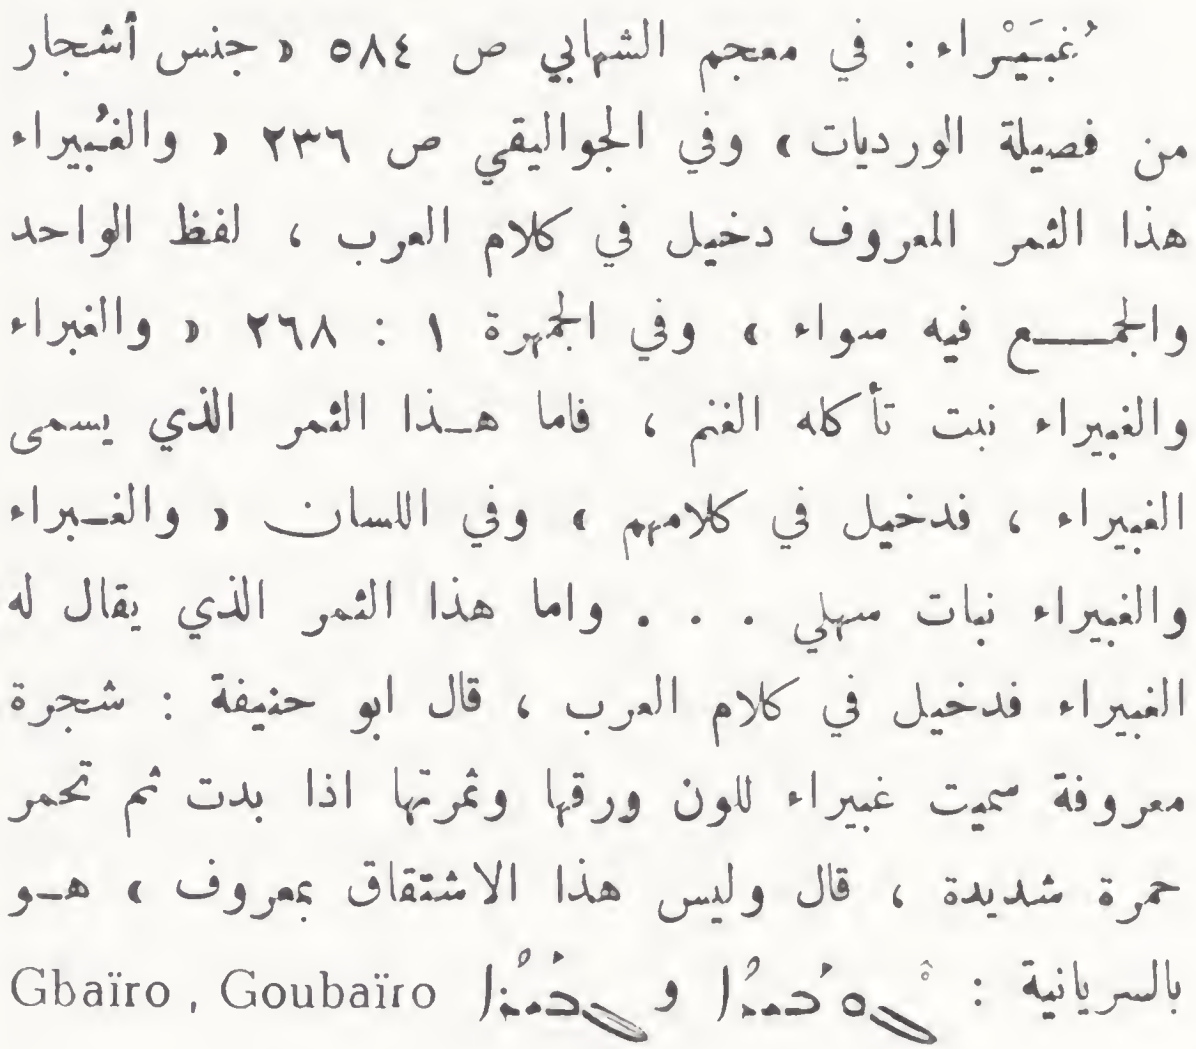 غُبَيْراء : في معجم الشهابي ص ٥٨٤ « جنس أشجار
من فصيلة الورديات » وفي الجواليقي ص ٢٣٦ « والغُبيراء
هذا الثمر المعروف دخيل في كلام العرب ، لفظ الواحد
والجمـــع فيه سواء » وفي الجمهرة ١ : ٢٦٨ « والغبراء
والغبيراء نبت تأكله الغنم ، فاما هــذا الثمر الذي يسمى
الغبيراء ، فدخيل في كلامهم » وفي اللسان « والغــبراء
والغبيراء نبات سهلي . . . واما هذا الثمر الذي يقال له
الغبيراء فدخيل في كلام العرب ، قال ابو حنيفة : شجرة
معروفة سميت غبيراء للون ورقها وثمرتها اذا بدت ثم تحمر
حمرة شديدة ، قال وليس هذا الاشتقاق بمعروف » هــو
بالسريانية : ܓܘܒܝܪܐ و ܓܒܝܪܐ Gbaïro , Goubaïro